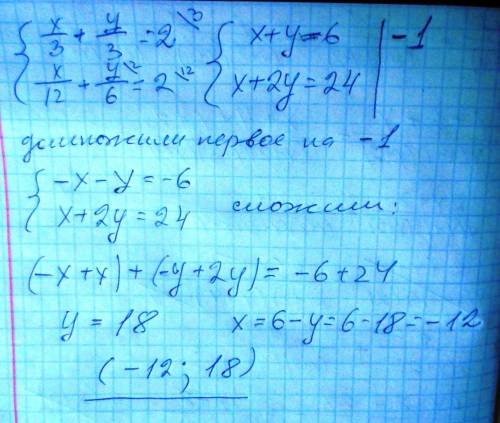 { x/3 + y/3 = 2 \3 { x+y=6 | -1
{ x/12 + y/6 \12 = 2 \12 { x+2y=24
домножили первое на -1
{ -x-y=-6
{ x+2y=24 сложили:
(-x+x)+(-y+2y)=-6+24
y=18 x=6-y=6-18=-12
(-12; 18)